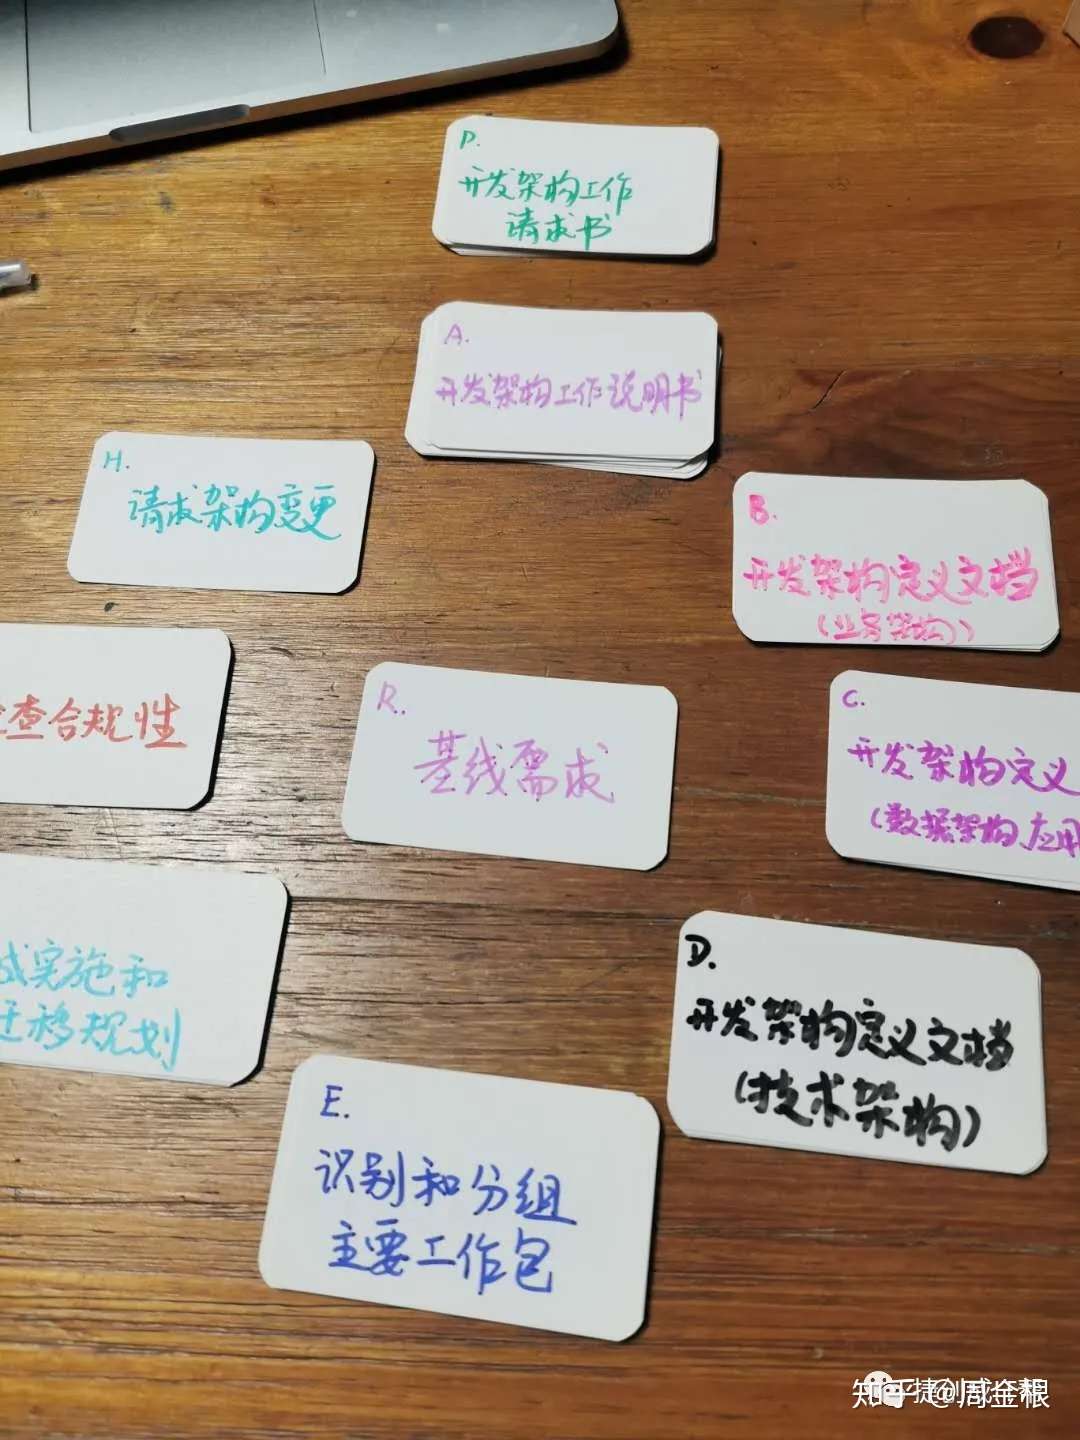 P.
开发架构工作
请求书
A.
开发架构工作说明书
H.
请求架构变更
B.
开发架构定义文档
(业务架构)
查合规性
R.
基线需求
C.
开发架构定义
(数据架构,应用
实施和
迁移规划
D.
开发架构定义文档
(技术架构)
E.
识别和分组
主要工作包
知乎 @周金根